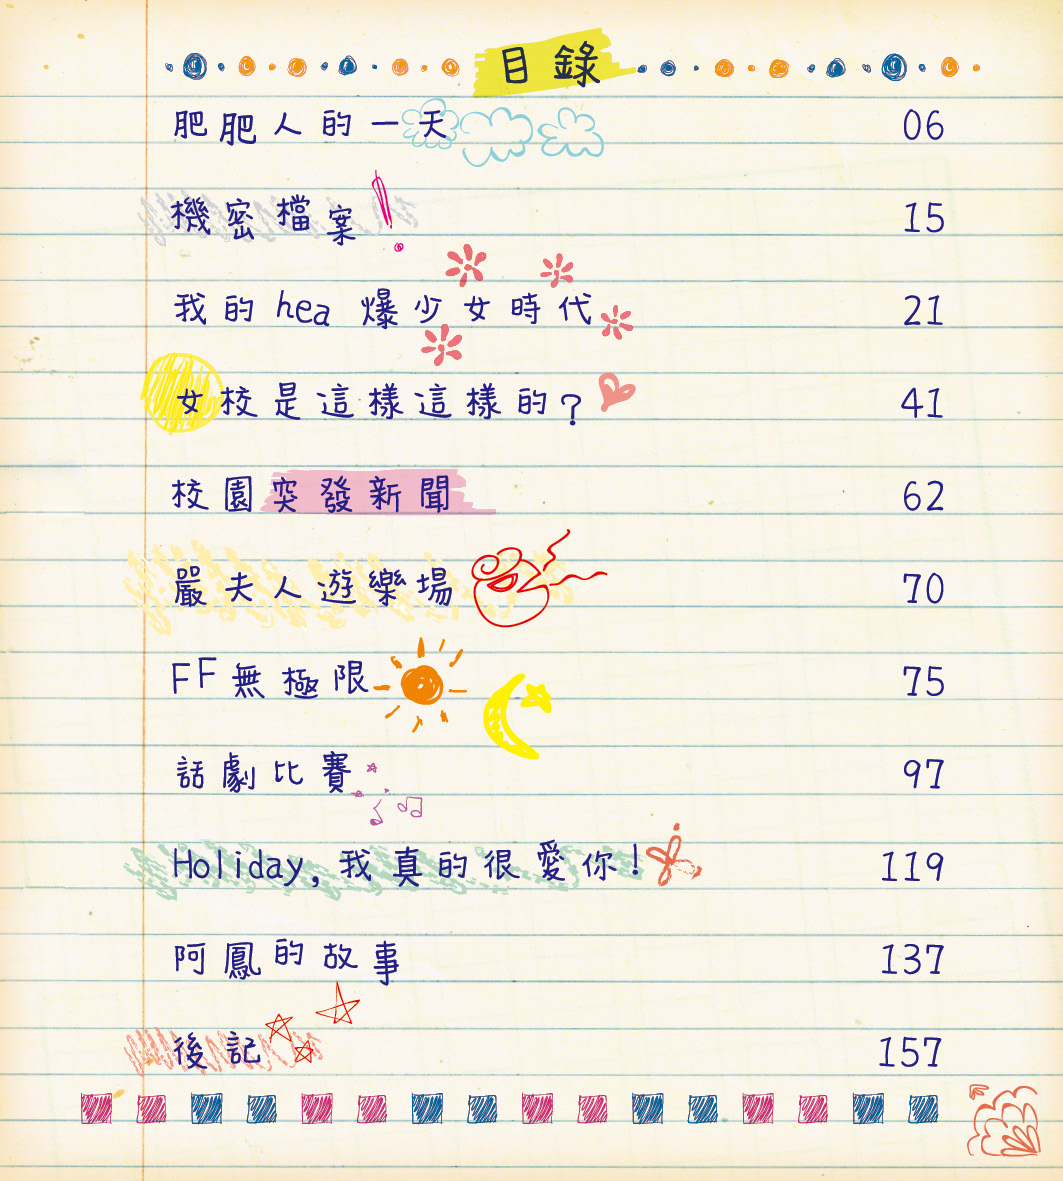 目錄
肥肥人的一天 06
機密檔案! 15
我的hea爆少女時代 21
女校是這樣這樣的? 41
校園突發新聞 62
嚴夫人遊樂場 70
FF無極限 75
話劇比賽 97
Holiday,我真的很愛你! 119
阿鳳的故事 137
後記 157